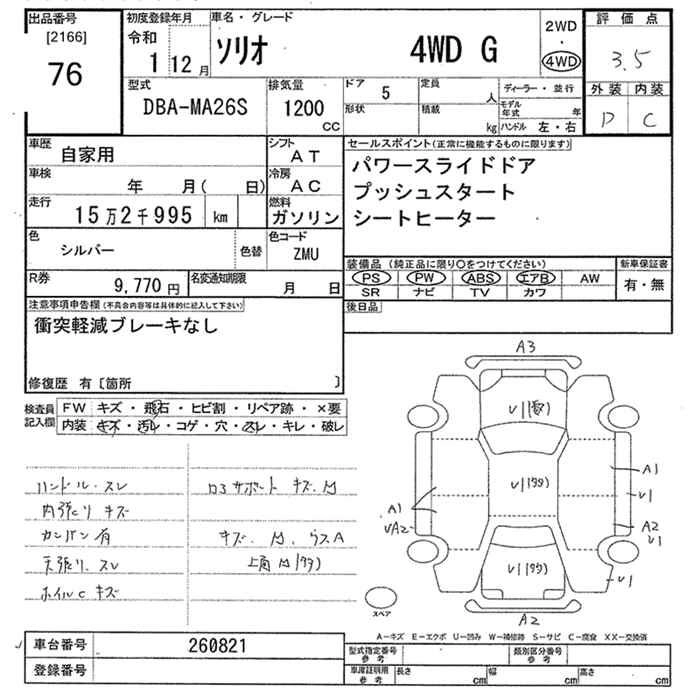 出品番号
[2166]
76
初度登録年月
令和
1 12月
車名・グレード
ソリオ 4WD G
2WD
・
4WD
評価点
3.5
外装 内装
D C
型式
DBA-MA26S
排気量
1200
CC
ドア
5
形状
定員
人
積載
kg
ディーラー・並行
モデル年式 年
ハンドル 左・右
車歴
自家用
シフト
AT
車検
年 月( 日)
冷房
AC
走行
15万2千995 km
燃料
ガソリン
色
シルバー
色替
色コード
ZMU
R券
9,770円
名変通知期限
月 日
セールスポイント(正常に機能するものに限ります)
パワースライドドア
プッシュスタート
シートヒーター
装備品(純正品に限り○をつけてください)
PS PW ABS エアB AW
SR ナビ TV カワ
新車保証書
有・無
後日品
注意事項申告欄(不具合内容等は具体的に記入して下さい)
衝突軽減ブレーキなし
修復歴 有〔箇所 〕
検査員記入欄
FW キズ・飛石・ヒビ割・リペア跡・×要
内装 キズ・汚レ・コゲ・穴・スレ・キレ・破レ
ハンドル.スレ
内張り キズ
カンバン有
天張り.スレ
ホイルC キズ
ロ3サポート キズ.凹
キズ. 凹. ウスA
上角凹(タタ)
A3
U1
U1(タタ)
U1(タタ)
A1
UA2
A1
U1
A2
U1
U1
A2
スペア
A－キズ E－エクボ U－凹み W－補修跡 S－サビ C－腐食 XX－交換済
車台番号
260821
登録番号
型式指定番号
参考
類別区分番号
参考
車庫証明用
参考
長さ cm 幅 cm 高さ cm